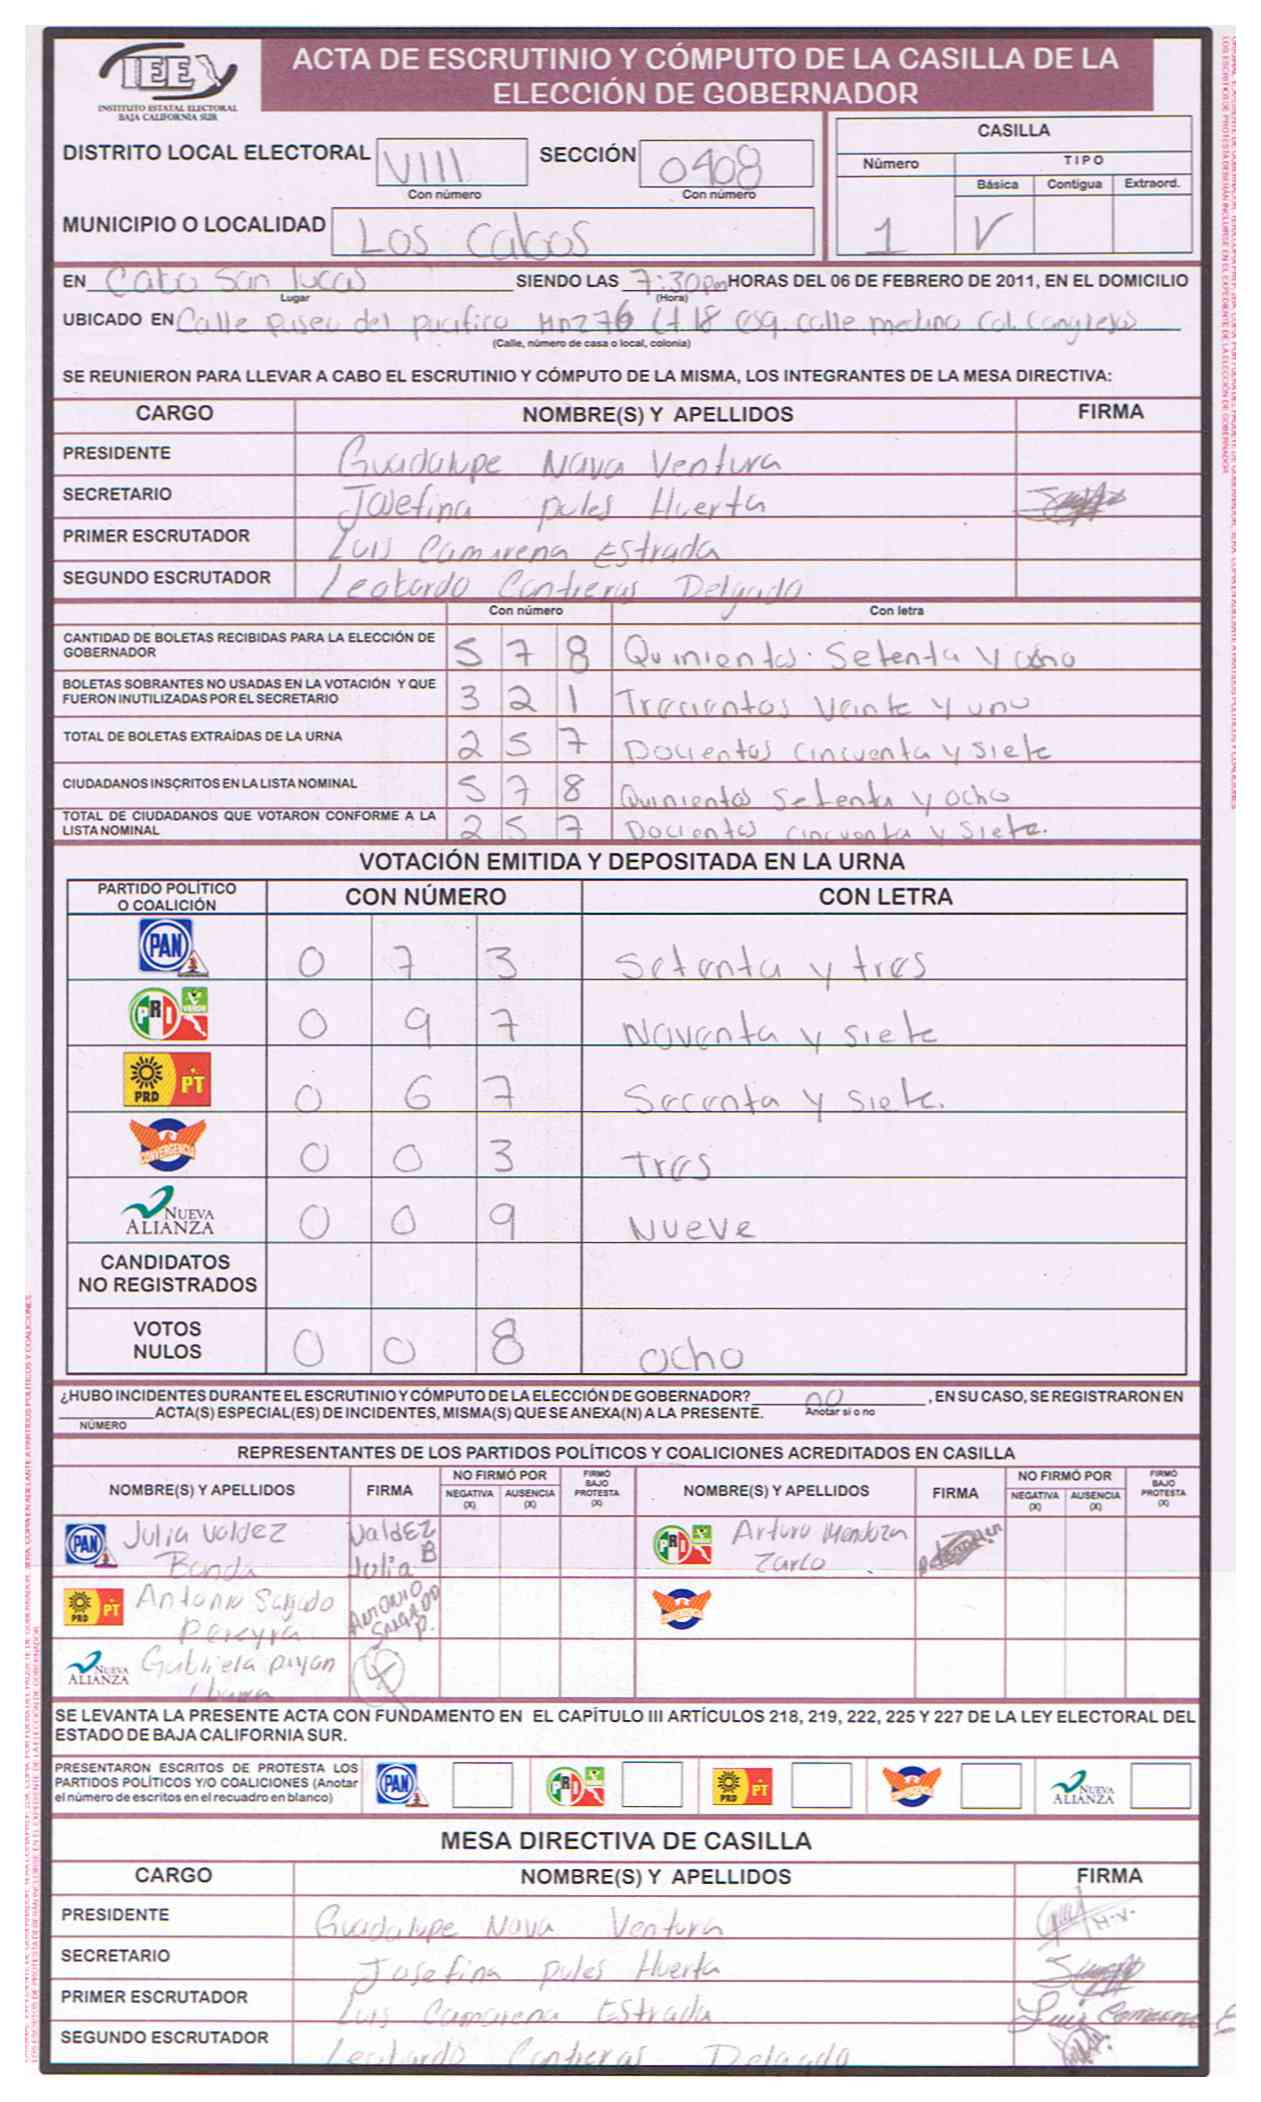 IEEX
INSTITUTO ESTATAL ELECTORAL
BAJA CALIFORNIA SUR
ACTA DE ESCRUTINIO Y CÓMPUTO DE LA CASILLA DE LA
ELECCIÓN DE GOBERNADOR
DISTRITO LOCAL ELECTORAL VIII SECCIÓN 0408
Con número Con número
MUNICIPIO O LOCALIDAD Los Cabos
CASILLA
Número TIPO
Básica Contigua Extraord.
1 V
EN Cabo San Lucas SIENDO LAS 7:30pm HORAS DEL 06 DE FEBRERO DE 2011, EN EL DOMICILIO
Lugar (Hora)
UBICADO EN Calle paseo del pacifico Mnz76 Lt 18 esq. calle medino Col. Cangrejos
(Calle, número de casa o local, colonia)
SE REUNIERON PARA LLEVAR A CABO EL ESCRUTINIO Y CÓMPUTO DE LA MISMA, LOS INTEGRANTES DE LA MESA DIRECTIVA:
CARGO NOMBRE(S) Y APELLIDOS FIRMA
PRESIDENTE Guadalupe Nava Ventura
SECRETARIO Josefina pules Huerta
PRIMER ESCRUTADOR Luis Camarena Estrada
SEGUNDO ESCRUTADOR Leobardo Contreras Delgado
Con número Con letra
CANTIDAD DE BOLETAS RECIBIDAS PARA LA ELECCIÓN DE
GOBERNADOR 5 7 8 Quinientos Setenta y ocho
BOLETAS SOBRANTES NO USADAS EN LA VOTACIÓN Y QUE
FUERON INUTILIZADAS POR EL SECRETARIO 3 2 1 Trecientos Veinte y uno
TOTAL DE BOLETAS EXTRAÍDAS DE LA URNA 2 5 7 Docientos cincuenta y siete
CIUDADANOS INSCRITOS EN LA LISTA NOMINAL 5 7 8 Quinientos Setenta y ocho
TOTAL DE CIUDADANOS QUE VOTARON CONFORME A LA
LISTA NOMINAL 2 5 7 Docientos cincuenta y siete.
VOTACIÓN EMITIDA Y DEPOSITADA EN LA URNA
PARTIDO POLÍTICO
O COALICIÓN CON NÚMERO CON LETRA
PAN 0 7 3 Setenta y tres
PRI VERDE 0 9 7 Noventa y siete
PRD PT 0 6 7 Secenta y siete.
CONVERGENCIA 0 0 3 tres
NUEVA ALIANZA 0 0 9 Nueve
CANDIDATOS
NO REGISTRADOS
VOTOS
NULOS 0 0 8 ocho
¿HUBO INCIDENTES DURANTE EL ESCRUTINIO Y CÓMPUTO DE LA ELECCIÓN DE GOBERNADOR? no , EN SU CASO, SE REGISTRARON EN
ACTA(S) ESPECIAL(ES) DE INCIDENTES, MISMA(S) QUE SE ANEXA(N) A LA PRESENTE. Anotar si o no
NÚMERO
REPRESENTANTES DE LOS PARTIDOS POLÍTICOS Y COALICIONES ACREDITADOS EN CASILLA
NOMBRE(S) Y APELLIDOS FIRMA NO FIRMÓ POR NEGATIVA (X) AUSENCIA (X) FIRMÓ BAJO PROTESTA (X) NOMBRE(S) Y APELLIDOS FIRMA NO FIRMÓ POR NEGATIVA (X) AUSENCIA (X) FIRMÓ BAJO PROTESTA (X)
PAN Julia Valdez Banda Valdez Julia B PRI Arturo Mendoza Zarco
PRD PT Antonio Salgado Pereyra Antonio Salgado P.
NUEVA ALIANZA Gabriela
SE LEVANTA LA PRESENTE ACTA CON FUNDAMENTO EN EL CAPÍTULO III ARTÍCULOS 218, 219, 222, 225 Y 227 DE LA LEY ELECTORAL DEL
ESTADO DE BAJA CALIFORNIA SUR.
PRESENTARON ESCRITOS DE PROTESTA LOS
PARTIDOS POLÍTICOS Y/O COALICIONES (Anotar
el número de escritos en el recuadro en blanco) PAN PRI PRD PT NUEVA ALIANZA
MESA DIRECTIVA DE CASILLA
CARGO NOMBRE(S) Y APELLIDOS FIRMA
PRESIDENTE Guadalupe Nava Ventura
SECRETARIO Josefina pules Huerta
PRIMER ESCRUTADOR Luis Camarena Estrada Luis Camarena E
SEGUNDO ESCRUTADOR Leobardo Contreras Delgado